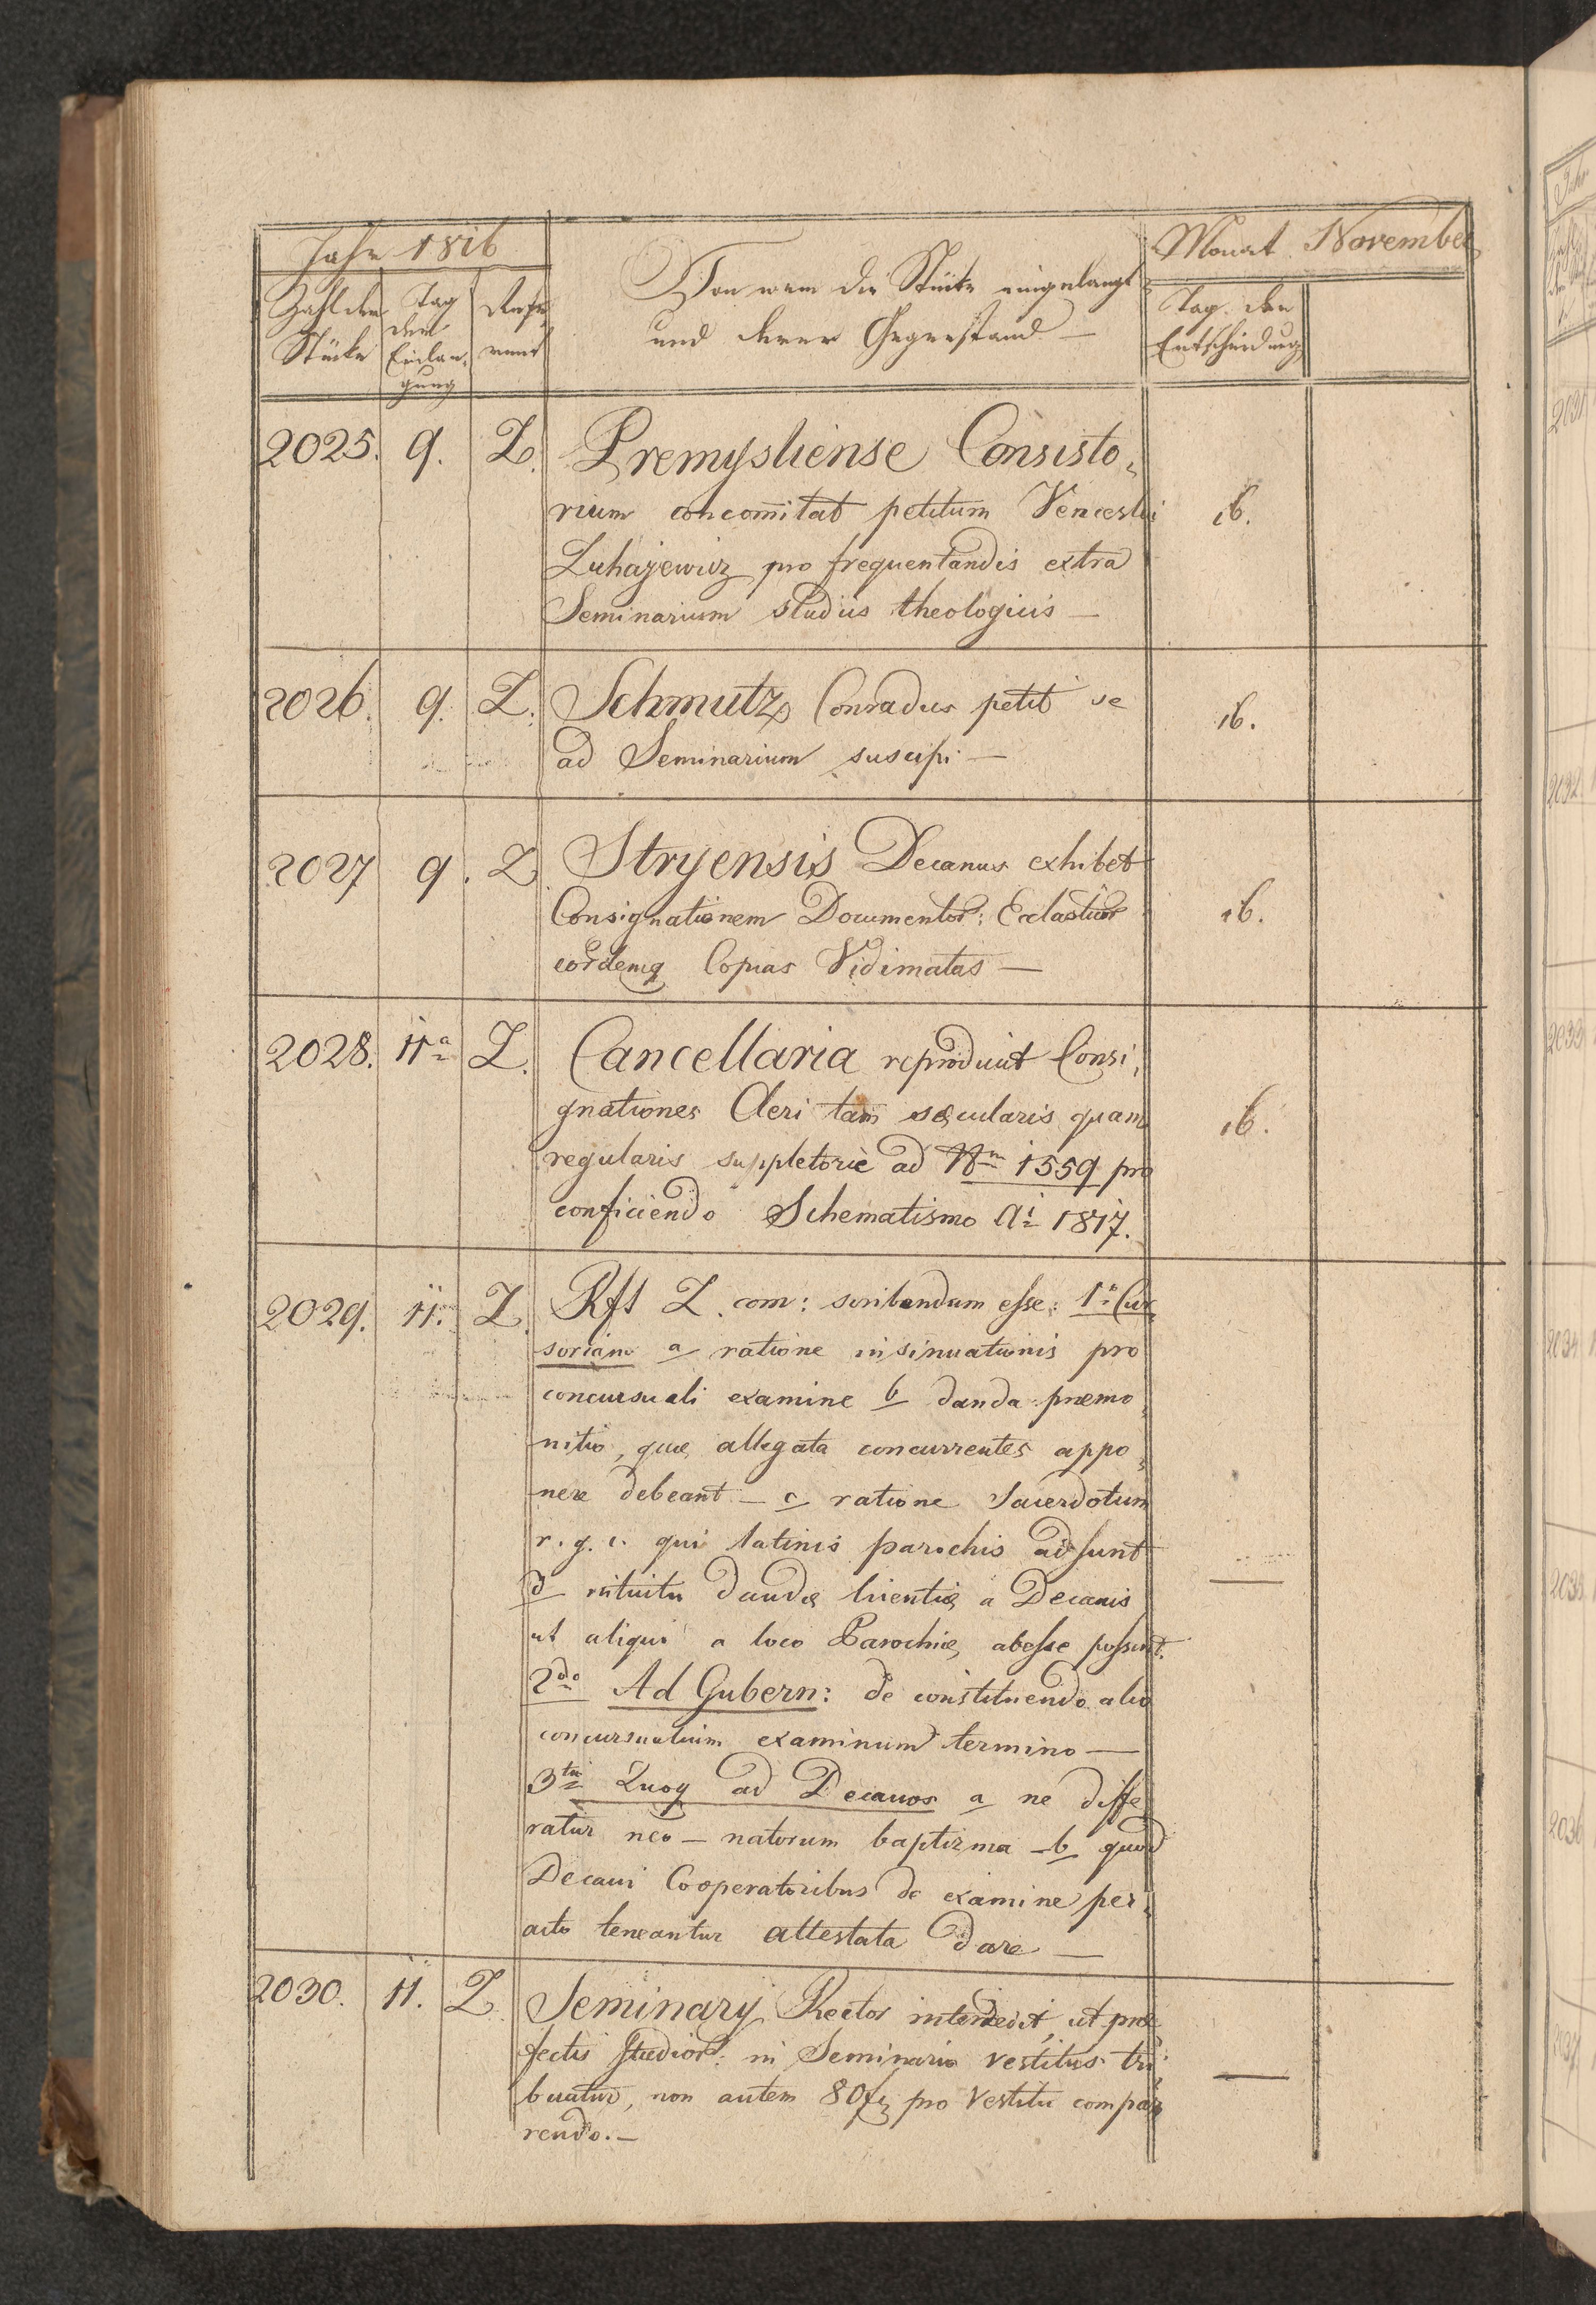 Jahr 1816
Monat November
Zahl der Stücke
Tag der Einlangung
Referent
Von wem die Stücke eingelangt
und derer Gegenstand —
Tag der
Entscheidung
2025. 9. Z. Premysliense Consisto„
rium concomitat petitum Venceslai 16.
Luhajewicz pro frequentandis extra
Seminarium studiis theologicis —
2026. 9. Z. Schmutz Conradus petit se
ad Seminarium suscipi — 16.
2027 9. Z. Stryensis Decanus exhibet
Consignationem Documentor: Ecclasticor 16.
eordemq Copias Vidimatas —
2028. 11a Z. Cancellaria reproducit Consi„
gnationes Cleri tam sæcularis quam 16.
regularis suppletorie ad Nm 1559 pro
conficiendo Schematismo Ai 1817.
2029. 11. Z. Rfs Z. com: scribendum esse: 1o Cur
soriam a ratione insinuationis pro
concursuali examine b danda præmo„
nitio, quæ allegata concurrentes appo„
nere debeant — c ratione Sacerdotum
r. g. c. qui latinis parochis adsunt
d intuitu dandæ licentiæ a Decanis —
ut aliqui a loco Parochiæ abesse possint.
2do Ad Gubern: de constituendo alio
concursualium examinum termino —
3tio Quoq ad Decanos a ne diffe
ratur neo – natorum baptizma – b quod
Decani Cooperatoribus de examine per„
acto teneantur attestata dare —
2030. 11. Z. Seminary Rector intercedit, ut præ
fectis Studior: in Seminario vestitus tri„ —
buatur, non autem 80 fr pro vestitu compa„
rendo. —